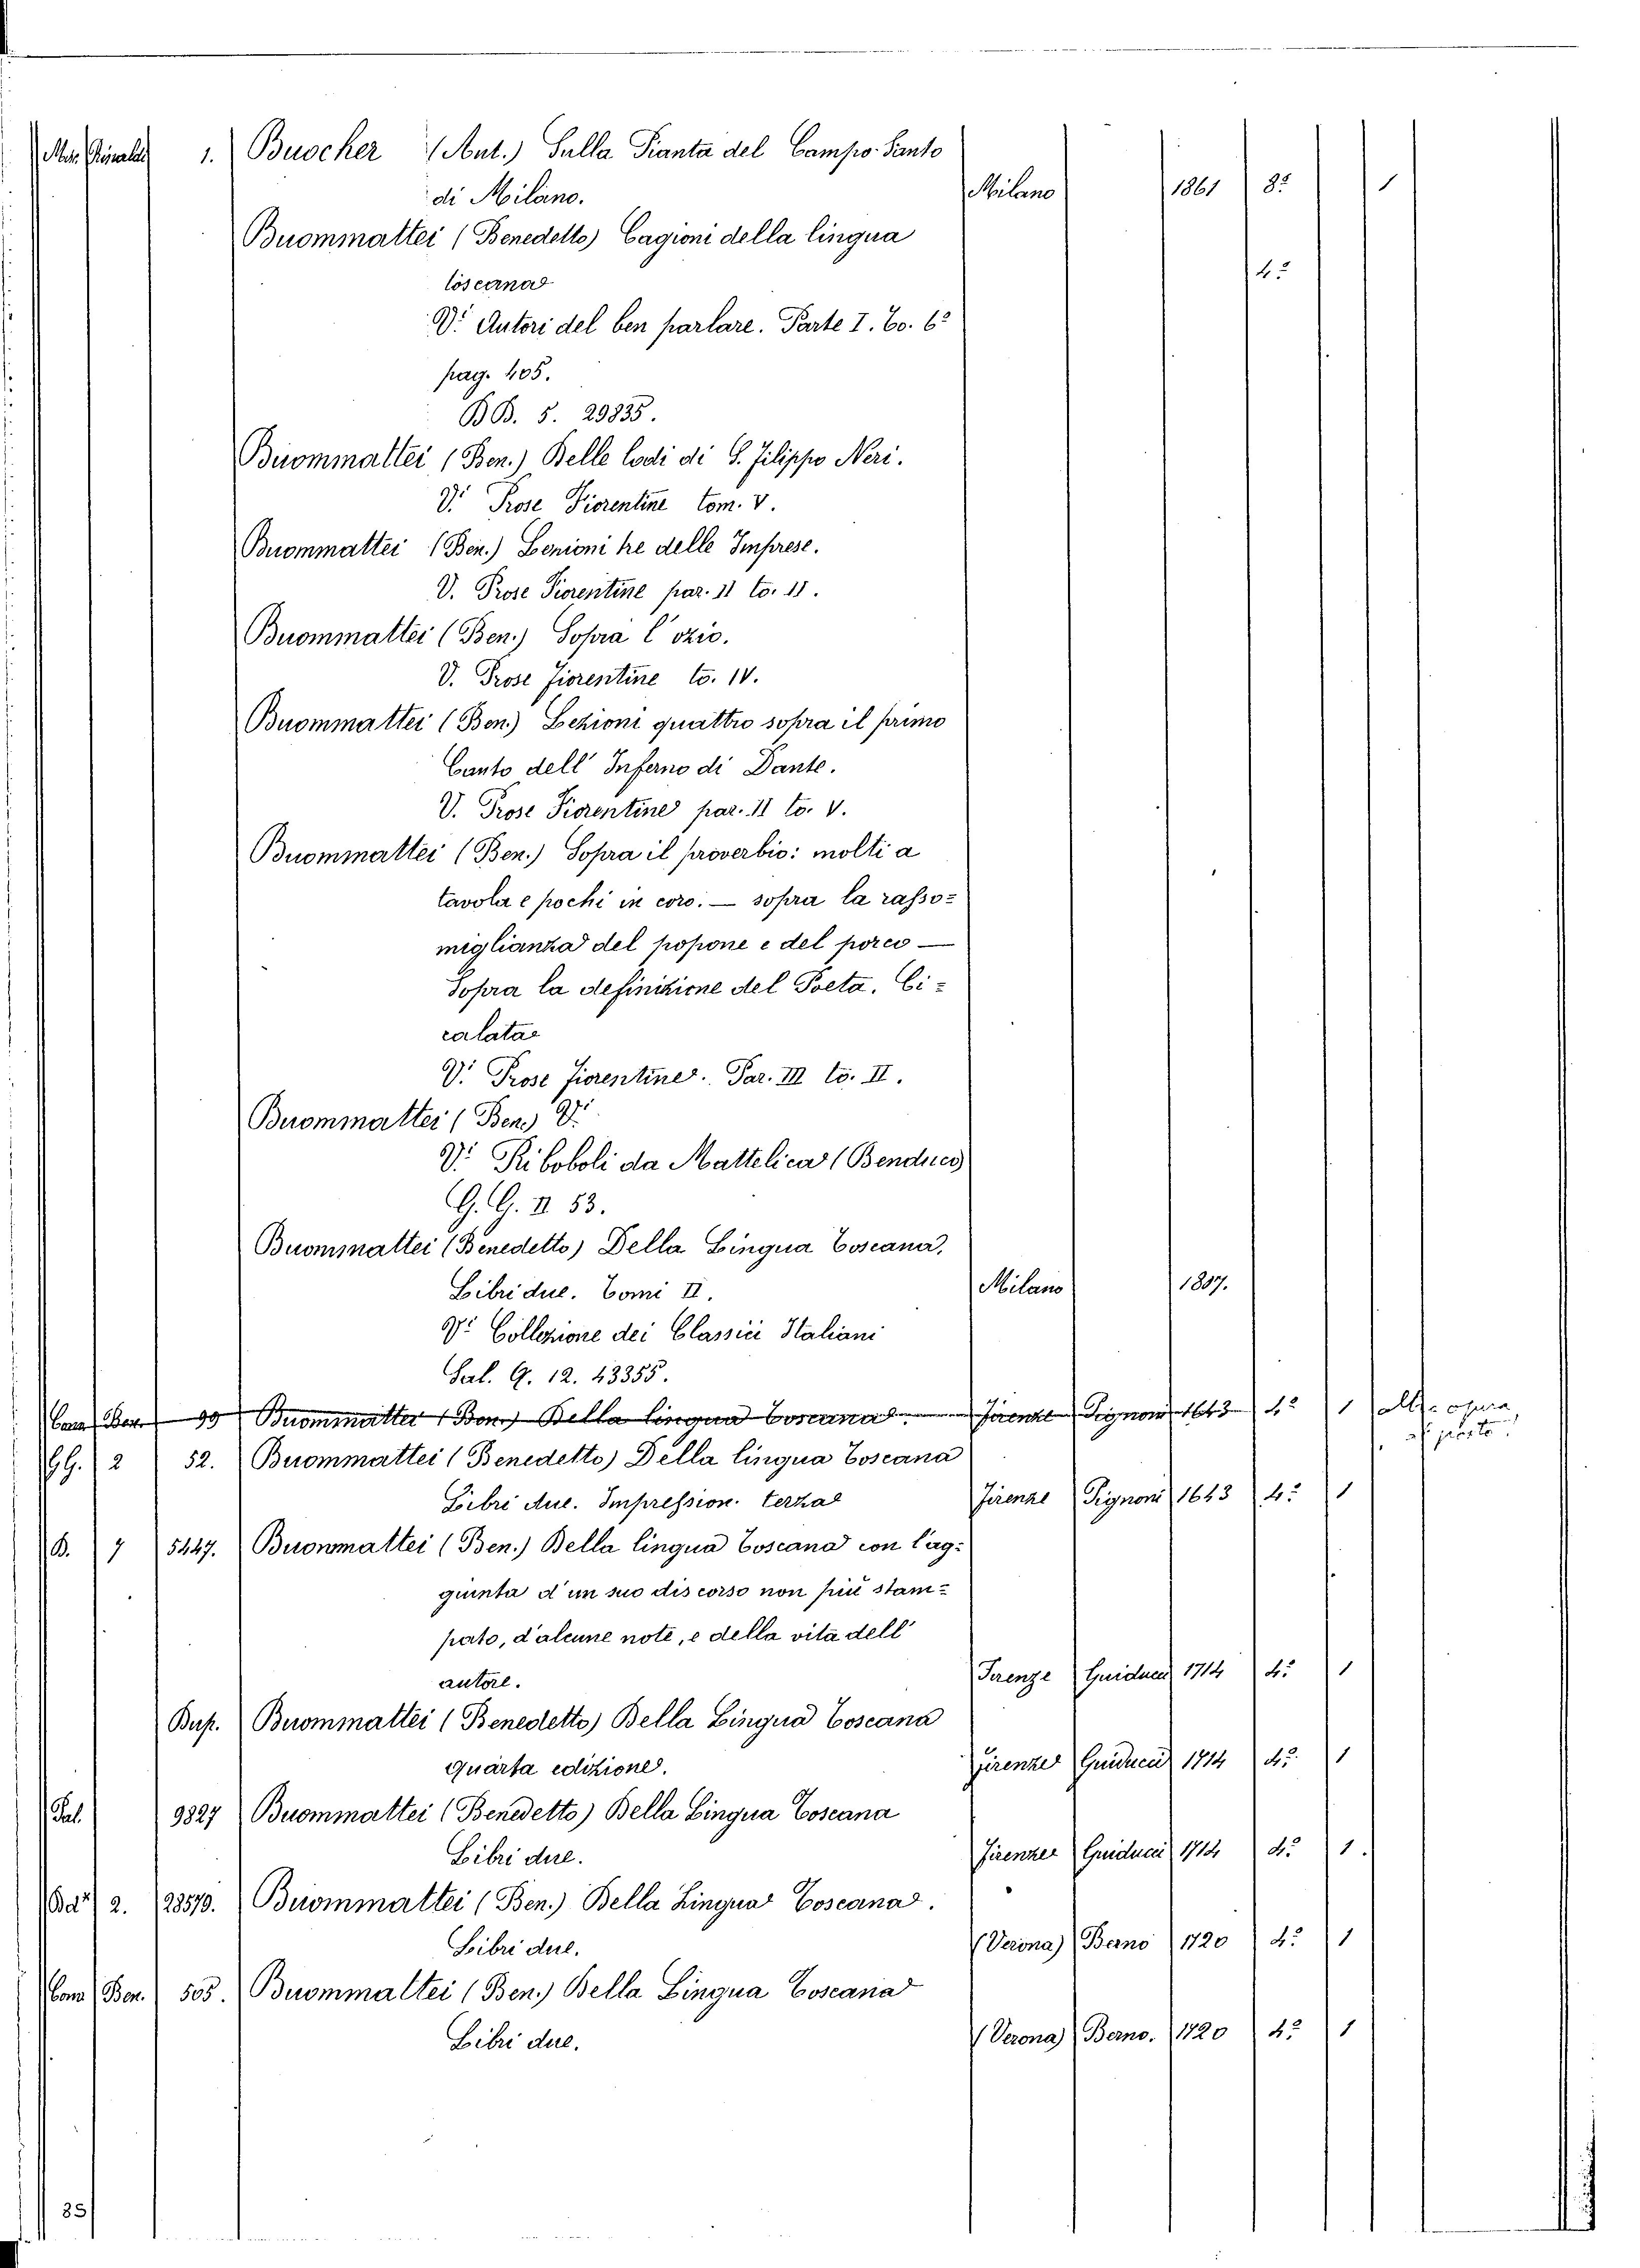 1. Buocher (Ant.) Sulla Pianta del Campo-Santo
di Milano. Milano 1861 8º 1
Buommattei (Benedetto) Cagioni della lingua
toscana 4º
V. Autori del ben parlare. Parte I. To. 6º
pag. 405.
BB. 5. 29835.
Buommattei (Ben.) Delle lodi di S. Filippo Neri.
V. Prose Fiorentine tom. V.
Buommattei (Ben.) Lezioni tre delle Imprese.
V. Prose Fiorentine par. II to. II.
Buommattei (Ben.) Sopra l'ozio.
V. Prose Fiorentine to. IV.
Buommattei (Ben.) Lezioni quattro sopra il primo
Canto dell' Inferno di Dante.
V. Prose Fiorentine par. II to. V.
Buommattei (Ben.) Sopra il proverbio: molti a
tavola e pochi in coro. — sopra la rasso=
miglianza del popone e del porco —
Sopra la definizione del Poeta. Ci=
calata
V. Prose Fiorentine. Par. III to. II.
Buommattei (Ben.) V.
V. Riboboli da Mattelica (Benducci)
G. G. II 53.
Buommattei (Benedetto) Della Lingua Toscana,
Libri due. Tomi II. Milano 1807.
V. Collezione dei Classici Italiani
Sal. G. 12. 43355.
Ben. 99 Buommattei (Ben.) Della lingua toscana. Firenze Pignoni 1643 4º 1 all'opera
GG. 2 52. Buommattei (Benedetto) Della lingua Toscana
Libri due. Impression. terza Firenze Pignoni 1643 4º 1
B. 7 5447. Buonmattei (Ben.) Della lingua Toscana con l'ag=
giunta d'un suo discorso non più stam=
pato, d'alcune note, e della vita dell'
autore. Firenze Guiducci 1714 4º 1
Bup. Buommattei (Benedetto) Della Lingua Toscana
quarta edizione. Firenze Guiducci 1714 4º 1
Pal. 9827 Buommattei (Benedetto) Della Lingua Toscana
Libri due. Firenze Guiducci 1714 4º 1.
2. 28579. Buommattei (Ben.) Della Lingua Toscana.
Libri due. (Verona) Berno 1720 4º 1
Ben. 505. Buommattei (Ben.) Della Lingua Toscana
Libri due. (Verona) Berno. 1720 4º 1
85